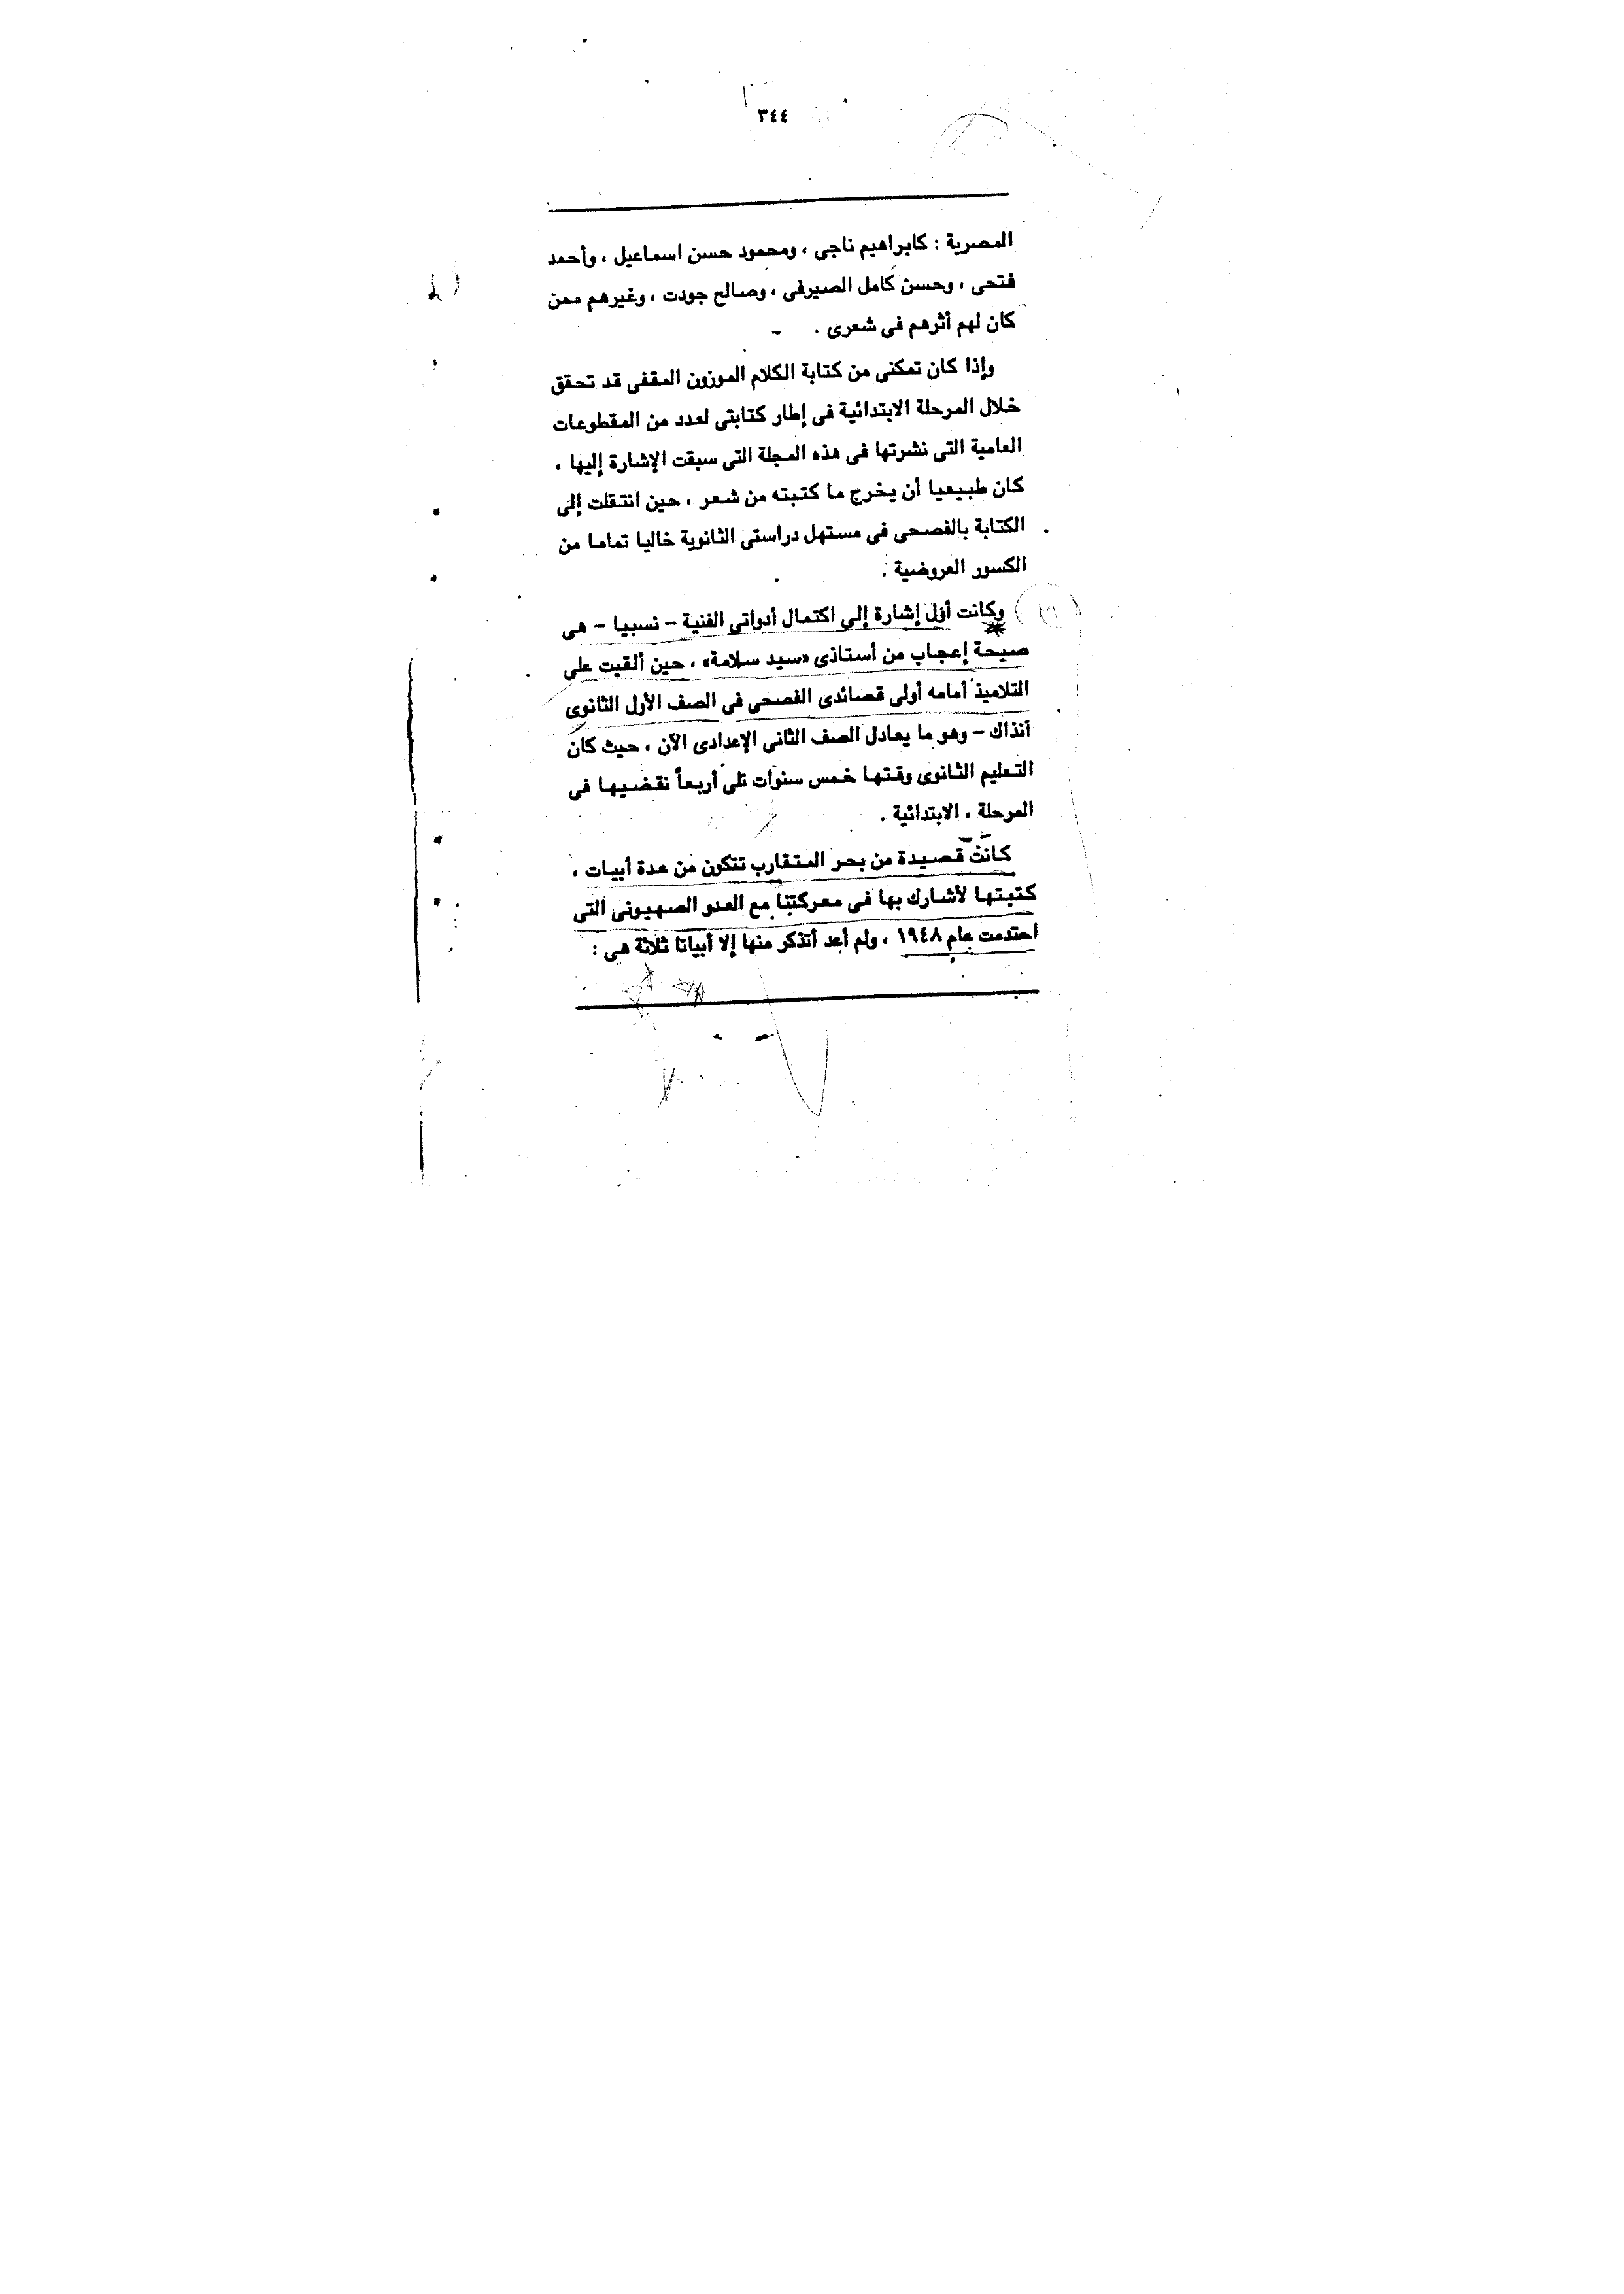 ٣٤٤
المصرية : كابراهيم ناجى ، ومحمود حسن اسماعيل ، وأحمد
فتحى ، وحسن كامل الصيرفى ، وصالح جودت ، وغيرهم ممن
كان لهم أثرهم فى شعرى .
وإذا كان تمكنى من كتابة الكلام الموزون المقفى قد تحقق
خلال المرحلة الابتدائية فى إطار كتابتى لعدد من المقطوعات
العامية التى نشرتها فى هذه المجلة التى سبقت الإشارة إليها ،
كان طبيعيا أن يخرج ما كتبته من شعر ، حين انتقلت إلى
الكتابة بالفصحى فى مستهل دراستى الثانوية خاليا تماما من
الكسور العروضية .
وكانت أول إشارة إلى اكتمال أدواتى الفنية - نسبيا - هى
صيحة إعجاب من أستاذى «سيد سلامة» ، حين ألقيت على
التلاميذ أمامه أولى قصائدى الفصحى فى الصف الأول الثانوى
آنذاك - وهو ما يعادل الصف الثانى الإعدادى الآن ، حيث كان
التعليم الثانوى وقتها خمس سنوات تلى أربعاً نقضيها فى
المرحلة ، الابتدائية .
كانت قصيدة من بحر المتقارب تتكون من عدة أبيات ،
كتبتها لأشارك بها فى معركتنا مع العدو الصهيونى التى
احتدمت عام ١٩٤٨ ، ولم أعد أتذكر منها إلا أبياتا ثلاثة هى :